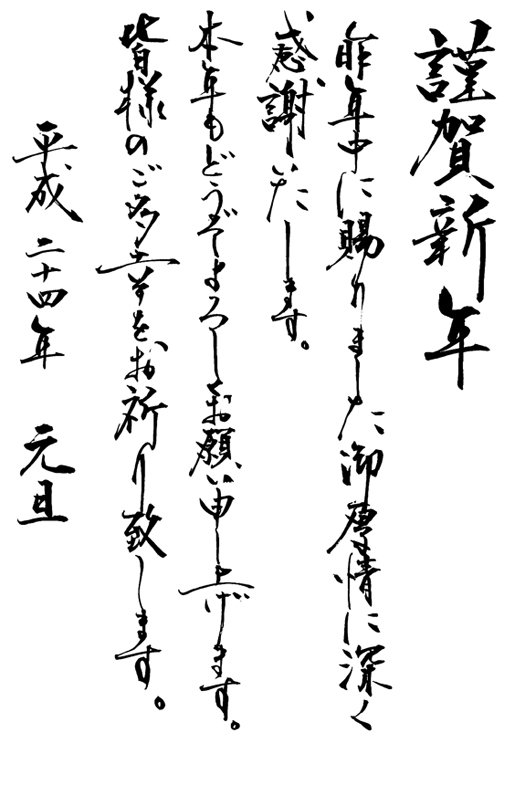 謹賀新年
昨年中に賜りました御厚情に深く
感謝いたします。
本年もどうぞよろしくお願い申し上げます。
皆様のご多幸をお祈り致します。
平成二十四年 元旦